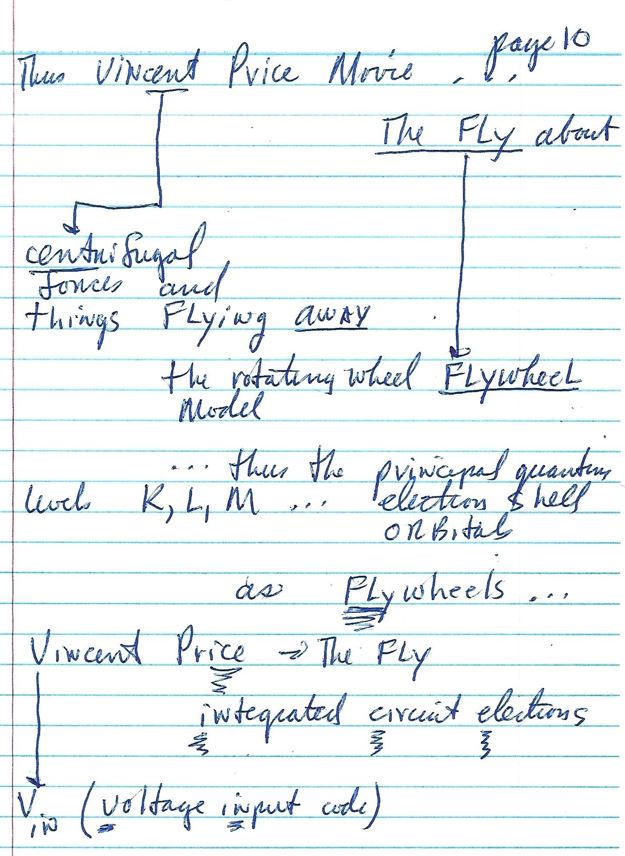 page 10
Thus Vincent Price Movie . . .
The FLy about
centrifugal
forces and
things FLying away
the rotating wheel FLywheeL
Model
... thus the principal quantum
levels K, L, M ... electron shell
ORBitals
as FLywheels ...
Vincent Price → The FLy
integrated circuit electrons
Vin (voltage input code)